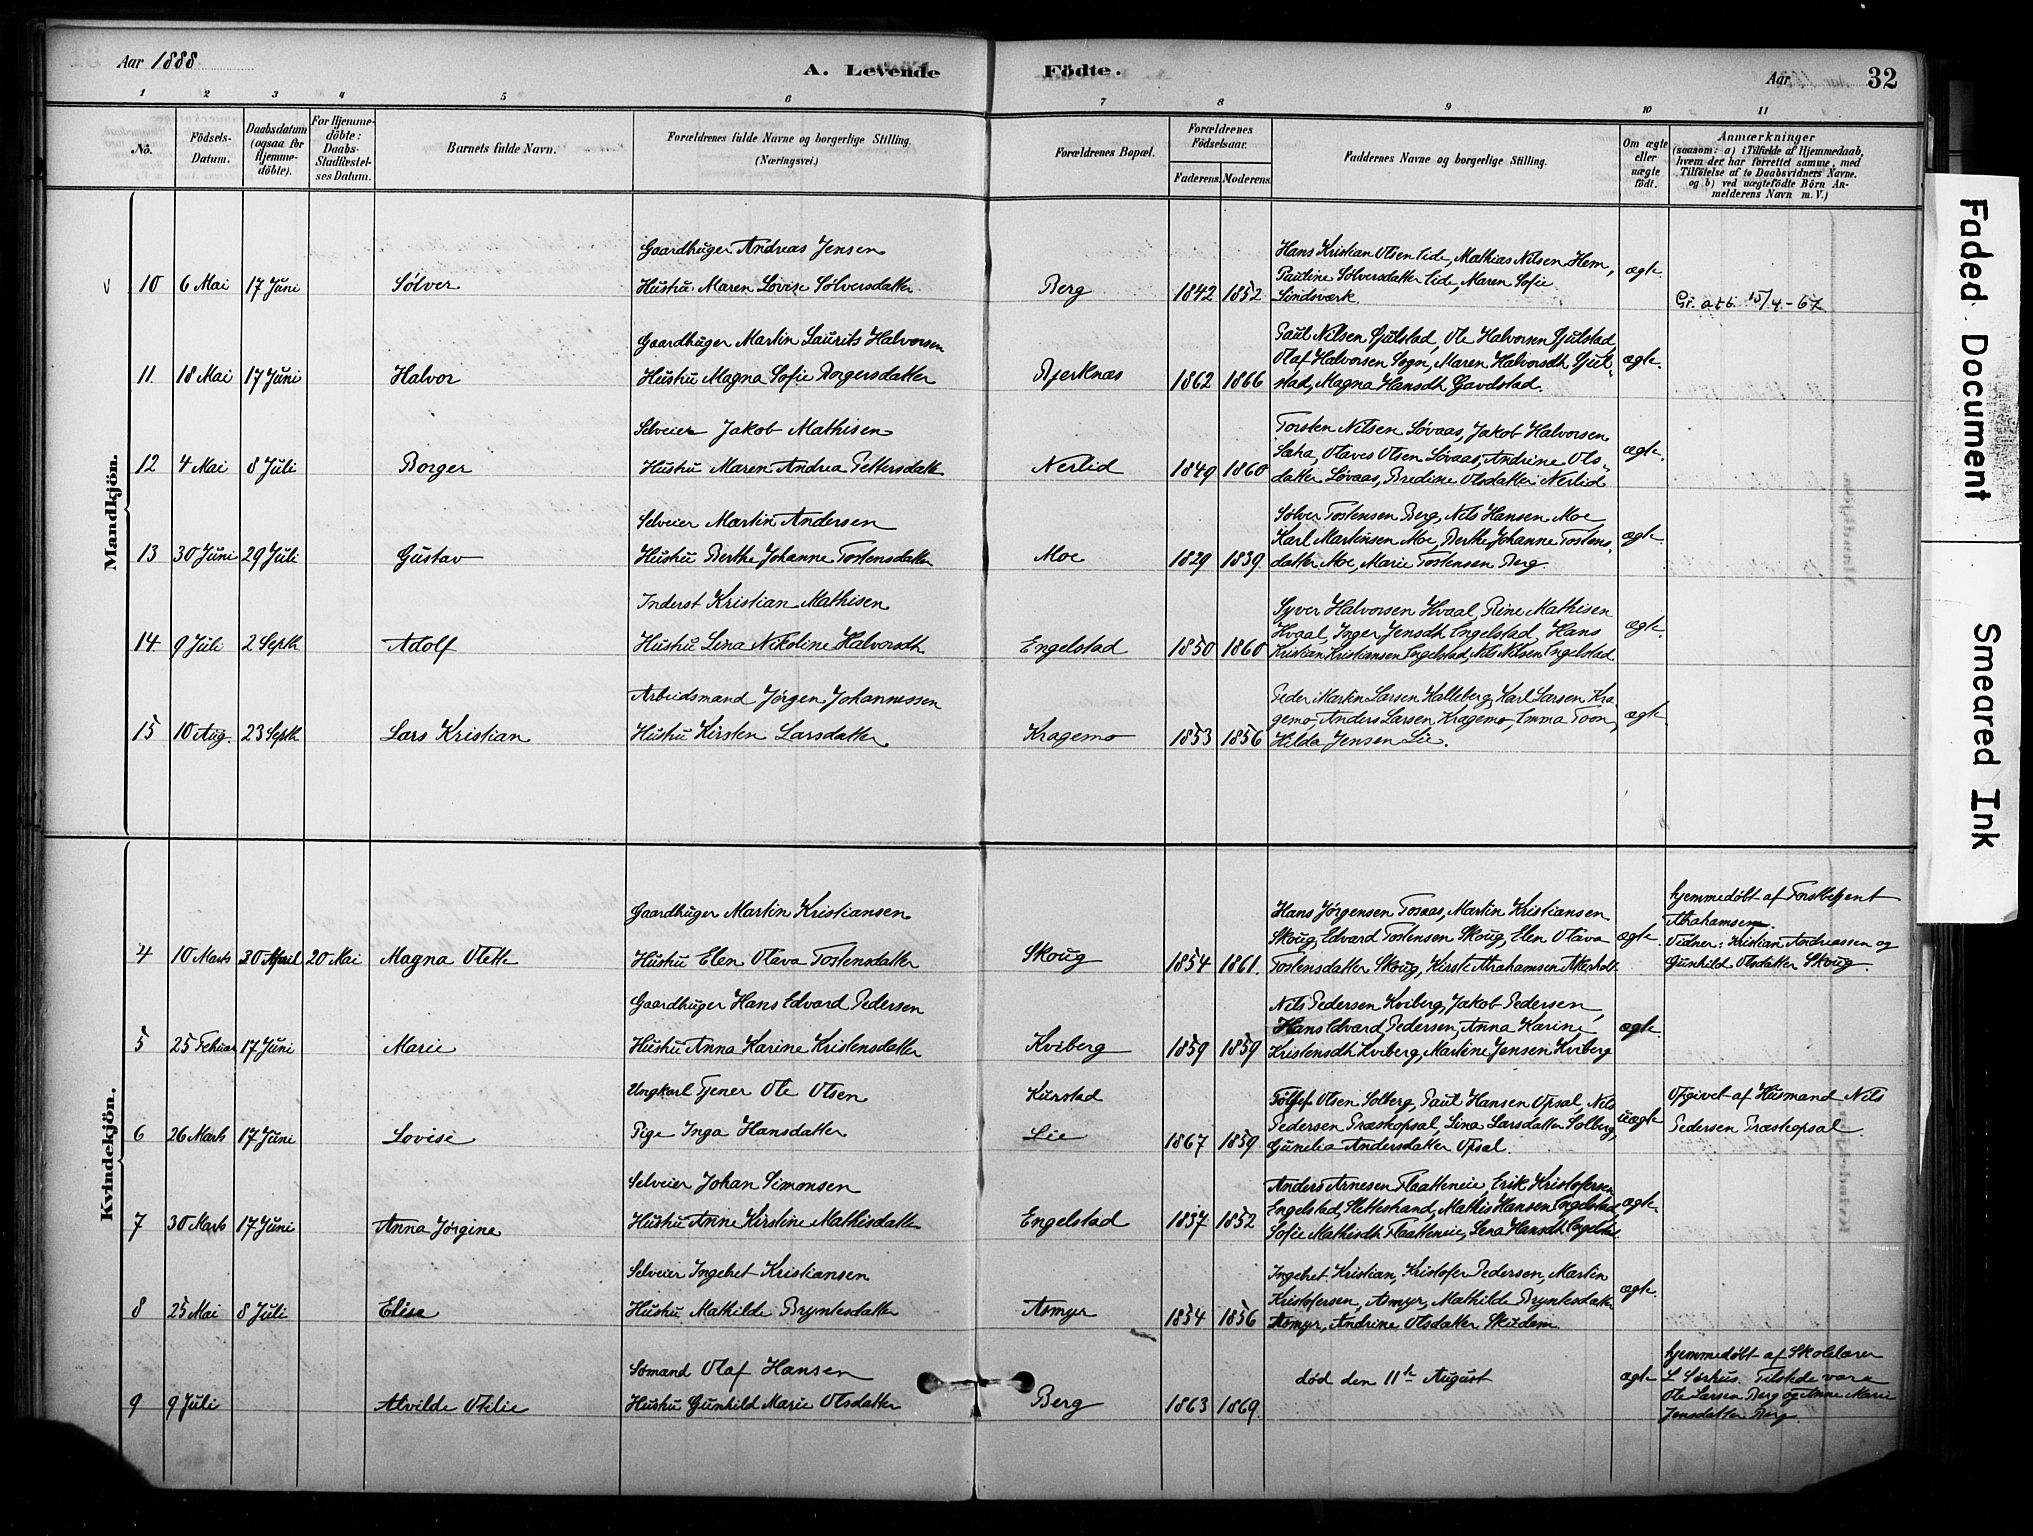 Aar 1888
A. Levende
Födte.
Aar
32
1 2 3 4 5 6 7 8 9 10 11
No.
Födsels-Datum.
Daabsdatum (ogsaa for Hjemme-döbte).
For Hjemme-döbte: Daabs-Stadfæstel-ses Datum.
Barnets fulde Navn.
Forældrenes fulde Navne og borgerlige Stilling. (Næringsvei.)
Forældrenes Bopæl.
Forældrenes Födselsaar.
Faderens. Moderens.
Faddernes Navne og borgerlige Stilling.
Om ægte eller uægte födt.
Anmærkninger
(saasom: a) i Tilfælde af Hjemmedaab,
hvem der har forrettet samme, med
Tilföielse af to Daabsvidners Navne.
og b) ved uægtefödte Börn An-
melderens Navn m. V.)
Mandkjön.
Gaardbruger Andreas Jensen
10 6 Mai 17 Juni Sølver Hustru Maren Lovise Sølversdatter Berg 1842 1852
Hans Kristian Olsen Eide, Mathias Nilsen Hem,
Pauline Sølversdatter Eide, Maren Sofie
Lindsværk.
ægte
15/4.-67
Gaardbruger Martin Laurits Halvorsen
11 18 Mai 17 Juni Halvor Hustru Magna Sofie Borgersdatter Bjerknæs 1862 1866
Paul Nilsen Gjulstad, Ole Halvorsen Gjulstad
Olaf Halvorsen Sogn, Maren Halvorsdtr Gjul-
stad, Magna Hansdtr Gavdstad.
ægte.
Selveier Jakob Mathisen
12 4 Mai 8 Juli Borger Hustru Maren Andrea Pettersdatter Nerlid 1849 1860
Torsten Nilsen Løvaas, Jakob Halvorsen
Olaves Olsen Løvaas, Andrine Ols-
datter Løvaas, Bredine Olsdatter Nerlid
ægte.
Selveier Martin Andersen
13 30 Juni 29 Juli Gustav Hustru Berthe Johanne Tostensdatter Moe 1829 1839
Sølver Tostensen Berg, Nils Hansen Moe
Karl Martinsen Moe, Berthe Johanne Tostens-
datter Moe, Marie Tostensen Berg.
ægte.
Inderst Kristian Mathisen
14 9 Juli 2 Septb Adolf Hustru Lina Nikoline Halvorsdtr Engelstad 1850 1860
Syver Halvorsen Hvaal, Rine Mathisen
Hvaal, Inger Jensdtr Engelstad, Hans
Kristian Kristiansen Engelstad, Nils Nilsen Engelstad.
ægte.
Arbeidsmand Jørgen Johannessen
15 10 Aug. 23 Septb Lars Kristian Hustru Kirsten Larsdatter Kragemo 1853 1856
Peder Martin Larsen Halleberg, Karl Larsen Kra
gemo, Anders Larsen Kragemo, Emma Toon,
Hilda Jensen Lie.
ægte
Kvindekjön.
Gaardbruger Martin Kristiansen
4 10 Marts 30 April 20 Mai Magna Olette Hustru Elen Olava Tostensdatter Skoug 1854 1861.
Hans Jørgensen Tosaas, Martin Kristiansen
Skoug, Edvard Tostensen Skoug, Elen Olava
Tostensdatter Skoug, Kirsti Abrahamsen Akerholt
ægte.
hjemmedøbt af Forstbetjent
Abrahamsen.
Vidner: Kristian Andreassen og
Gunhild Olsdatter Skoug.
Gaardbruger Hans Edvard Pedersen
5 25 Februar 17 Juni Marie Hustru Anna Karine Kristensdatter Kviberg 1859 1859
Nils Pedersen Kviberg, Jakob Pedersen,
Hans Edvard Pedersen, Anna Karine
Kristensdtr Kviberg, Martine Jensen Kviberg
ægte.
Ungkarl Tjener Ole Olsen Kurstad
6 26 Marts 17 Juni Lovise Pige Inga Hansdatter Lie 1867 1859
Tollef Olsen Solberg, Paul Hansen Opsal, Nils
Pedersen Præstopsal, Lina Larsdatter Solberg,
Gunelia Andersdatter Opsal.
uægte
Opgivet af Husmand Nils
Pedersen Præstopsal.
Selveier Johan Simonsen
7 30 Marts 17 Juni Anna Jørgine Hustru Anne Kirstine Mathisdatter Engelstad 1837 1852
Anders Arnesen Flaatteneie, Erik Kristofersen
Engelstad, Slettestrand, Mathis Hansen Engelstad
Sofie Mathisdtr Flaatteneie, Lena Hansdtr Engelstad.
ægte.
Selveier Ingebret Kristiansen
8 25 Mai 8 Juli Elise Hustru Mathilde Bryntesdatter Asmyr 1854 1856
Ingebret Kristian, Kristofer Pedersen, Martin
Kristofersen, Asmyr, Mathilde Bryntesdatter
Asmyr, Andrine Olsdatter
ægte.
Sømand Olaf Hansen
9 9 Juli Alvilde Otilie Hustru Gunhild Marie Olsdatter Berg 1863 1869.
død den 11te August
ægte
hjemmedøbt af Skolelærer
L. Sørhus. Tilstede vare
Ole Larsen Berg og Anne Marie
Jensdatter Berg.
Faded Document
Smeared Ink